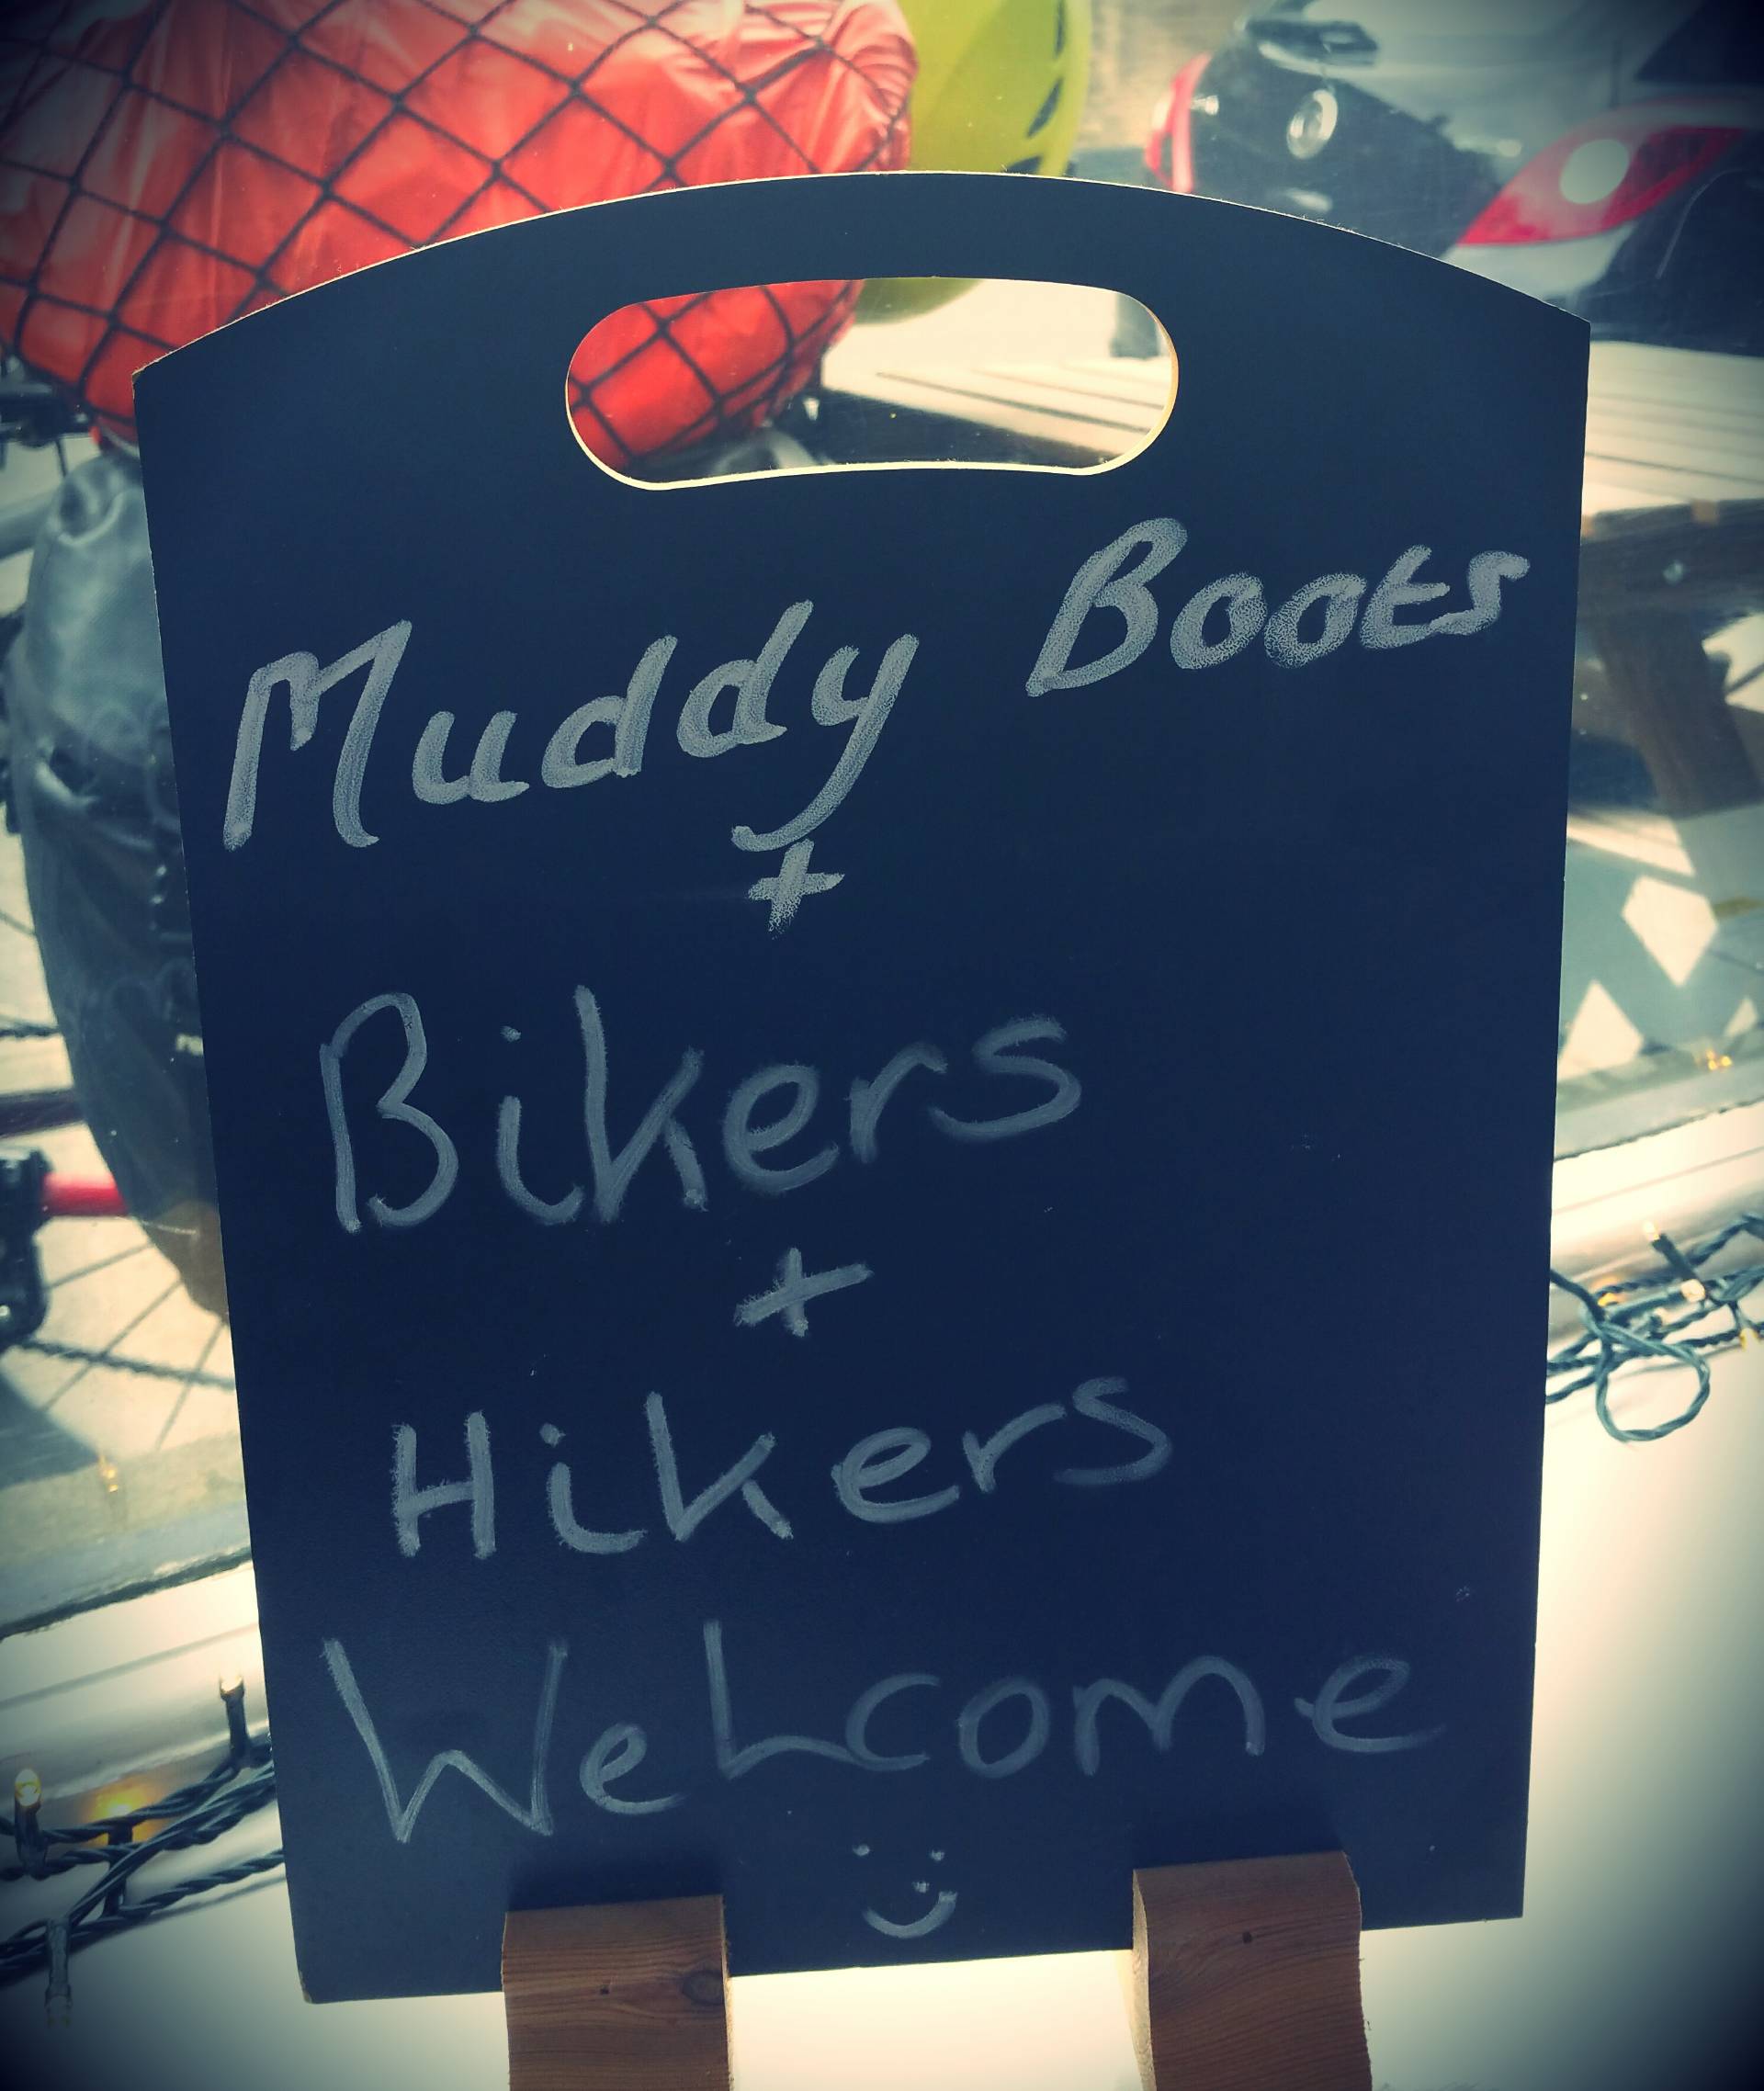 Muddy Boots
+
Bikers
+
Hikers
Welcome